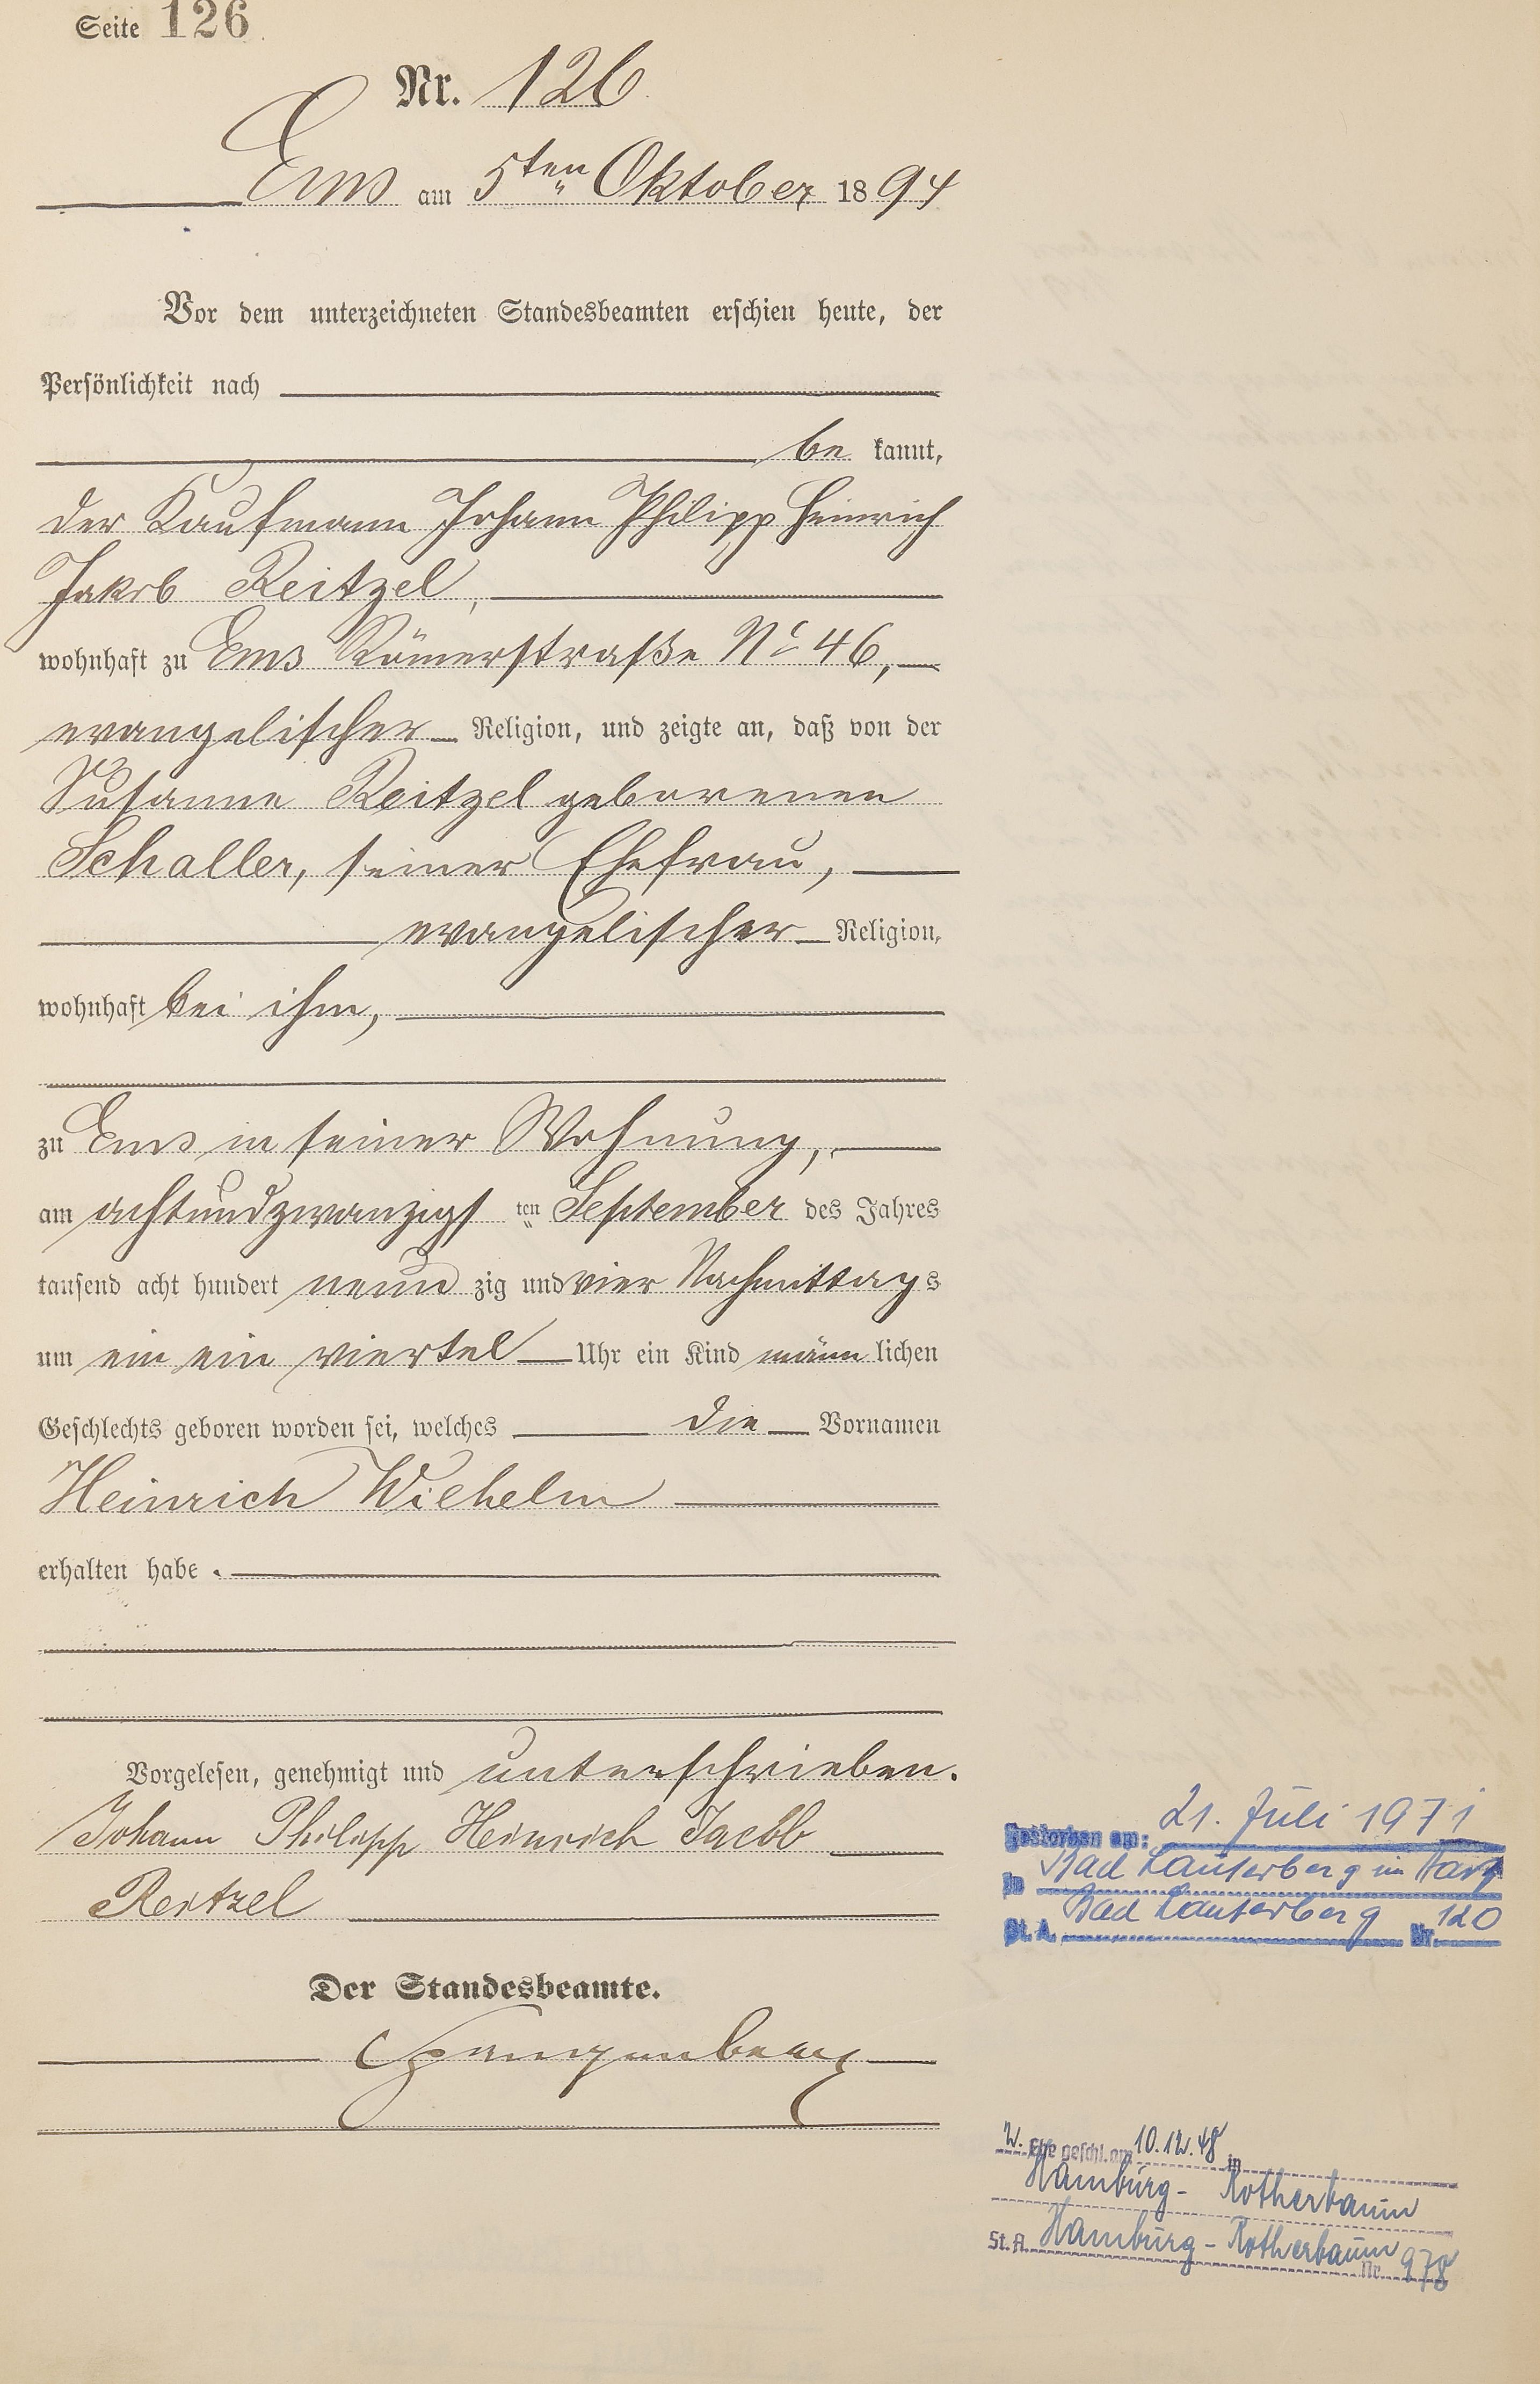 Seite 126
Nr. 126
Ems am 5ten Oktober 1894
Vor dem unterzeichneten Standesbeamten erschien heute, der
Persönlichkeit nach
be kannt,
der Kaufmann Johann Philipp Heinrich
Jakob Reitzel,
wohnhaft zu Ems Römerstraße No 46,
evangelischer Religion, und zeigte an, daß von der
Susanne Reitzel geborenen
Schaller, seiner Ehefrau,
evangelischer Religion,
wohnhaft bei ihm,
zu Ems in seiner Wohnung,
am achtundzwanzigs ten September des Jahres
tausend acht hundert neun zig und vier Nachmittags
um ein ein viertel Uhr ein Kind männ lichen
Geschlechts geboren worden sei, welches die Vornamen
Heinrich Wilhelm
erhalten habe.
Vorgelesen, genehmigt und unterschrieben.
Johann Philipp Heinrich Jacob
Reitzel
Der Standesbeamte.
Gestorben am: 21. Juli 1971
in Bad Lauterberg im Harz
St. A. Bad Lauterberg Nr. 120
W. Ehe geschl. am 10.12.48 in
Hamburg - Rotherbaum
St. A. Hamburg - Rotherbaum
Nr. 978